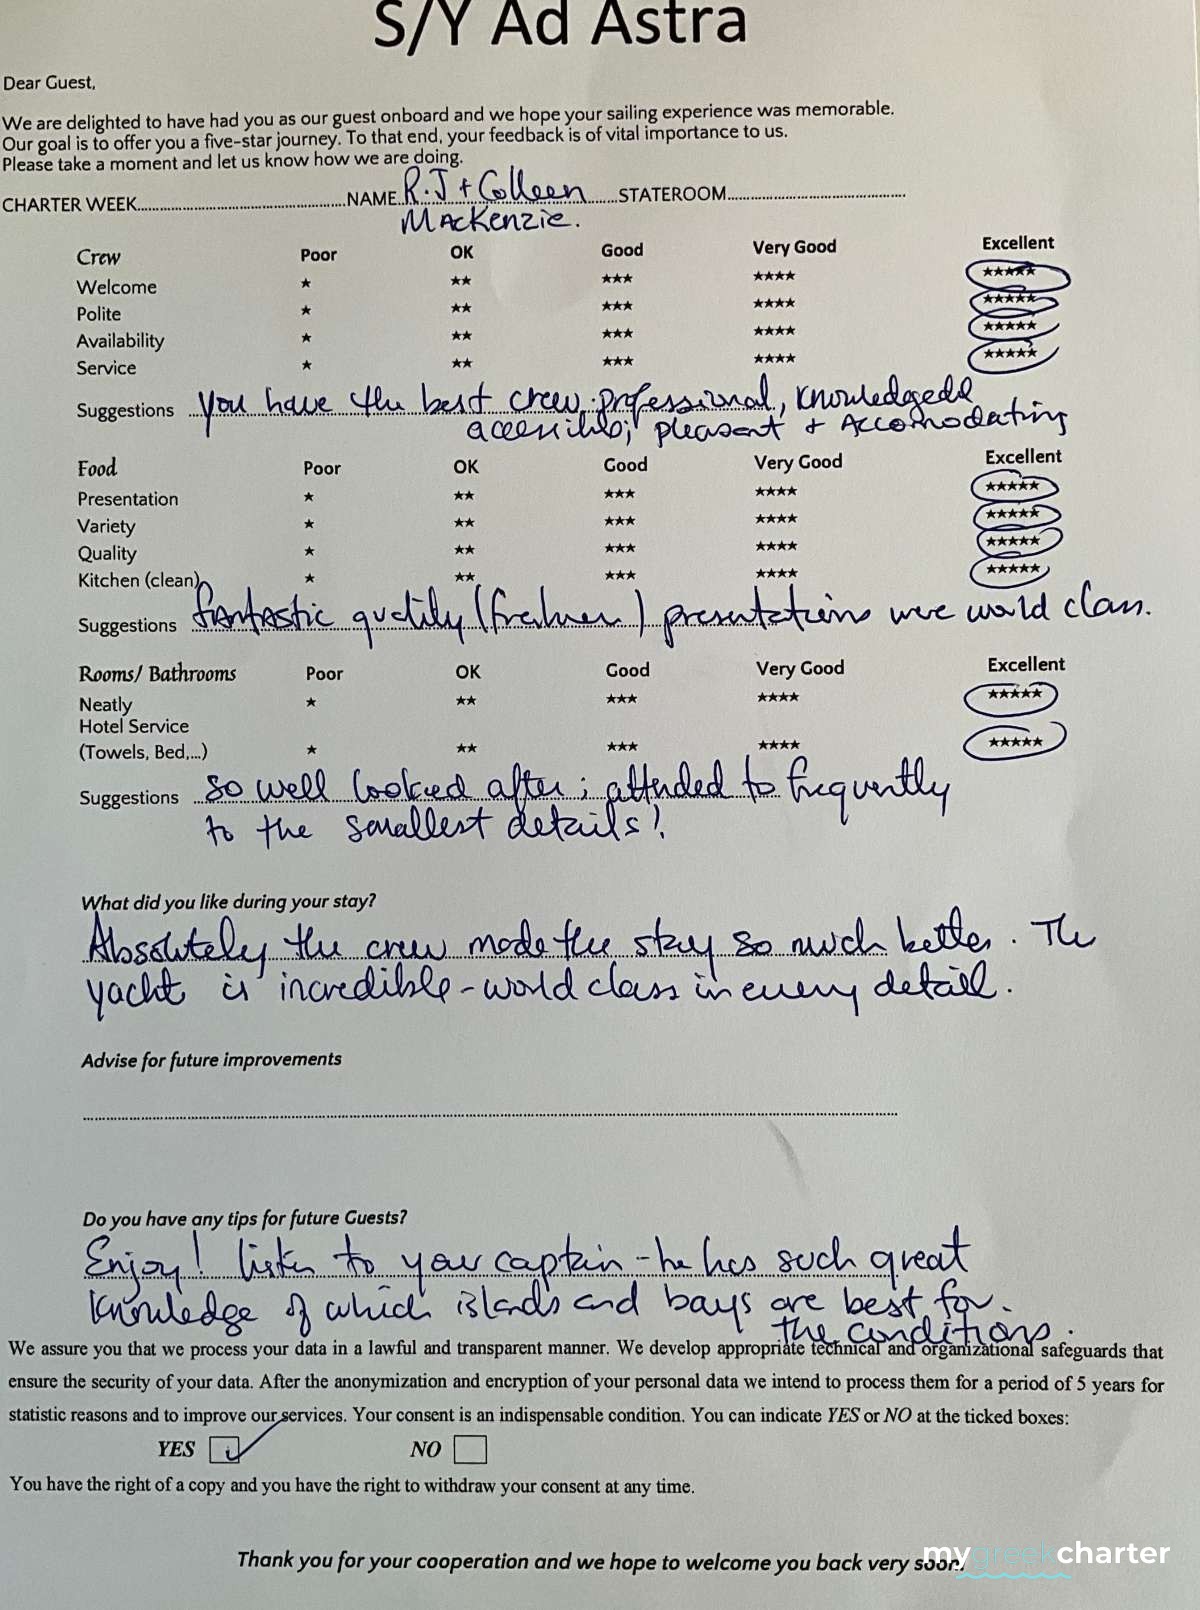 S/Y Ad Astra
Dear Guest,
We are delighted to have had you as our guest onboard and we hope your sailing experience was memorable.
Our goal is to offer you a five-star journey. To that end, your feedback is of vital importance to us.
Please take a moment and let us know how we are doing.
CHARTER WEEK..........NAME R.J + Colleen..........STATEROOM..........
MacKenzie.
Crew Poor OK Good Very Good Excellent
Welcome ★ ★★ ★★★ ★★★★ ★★★★★
Polite ★ ★★ ★★★ ★★★★ ★★★★★
Availability ★ ★★ ★★★ ★★★★ ★★★★★
Service ★ ★★ ★★★ ★★★★ ★★★★★
Suggestions You have the best crew. professional,
pleasant + Accomodating
Food Poor OK Good Very Good Excellent
Presentation ★ ★★ ★★★ ★★★★ ★★★★★
Variety ★ ★★ ★★★ ★★★★ ★★★★★
Quality ★ ★★ ★★★ ★★★★ ★★★★★
Kitchen (clean) ★ ★★ ★★★ ★★★★ ★★★★★
Suggestions fantastic quality ( ) presentations were world class.
Rooms/ Bathrooms Poor OK Good Very Good Excellent
Neatly ★ ★★ ★★★ ★★★★ ★★★★★
Hotel Service
(Towels, Bed,...) ★ ★★ ★★★ ★★★★ ★★★★★
Suggestions so well looked after; attended to frequently
to the smallest details!
What did you like during your stay?
Absolutely the crew made the stay so much better. The
yacht is incredible - world class in every detail.
Advise for future improvements
Do you have any tips for future Guests?
Enjoy! listen to your captain - he has such great
knowledge of which islands and bays are best for.
the conditions.
We assure you that we process your data in a lawful and transparent manner. We develop appropriate technical and organizational safeguards that
ensure the security of your data. After the anonymization and encryption of your personal data we intend to process them for a period of 5 years for
statistic reasons and to improve our services. Your consent is an indispensable condition. You can indicate YES or NO at the ticked boxes:
YES NO
You have the right of a copy and you have the right to withdraw your consent at any time.
Thank you for your cooperation and we hope to welcome you back very soon!
mygreekcharter